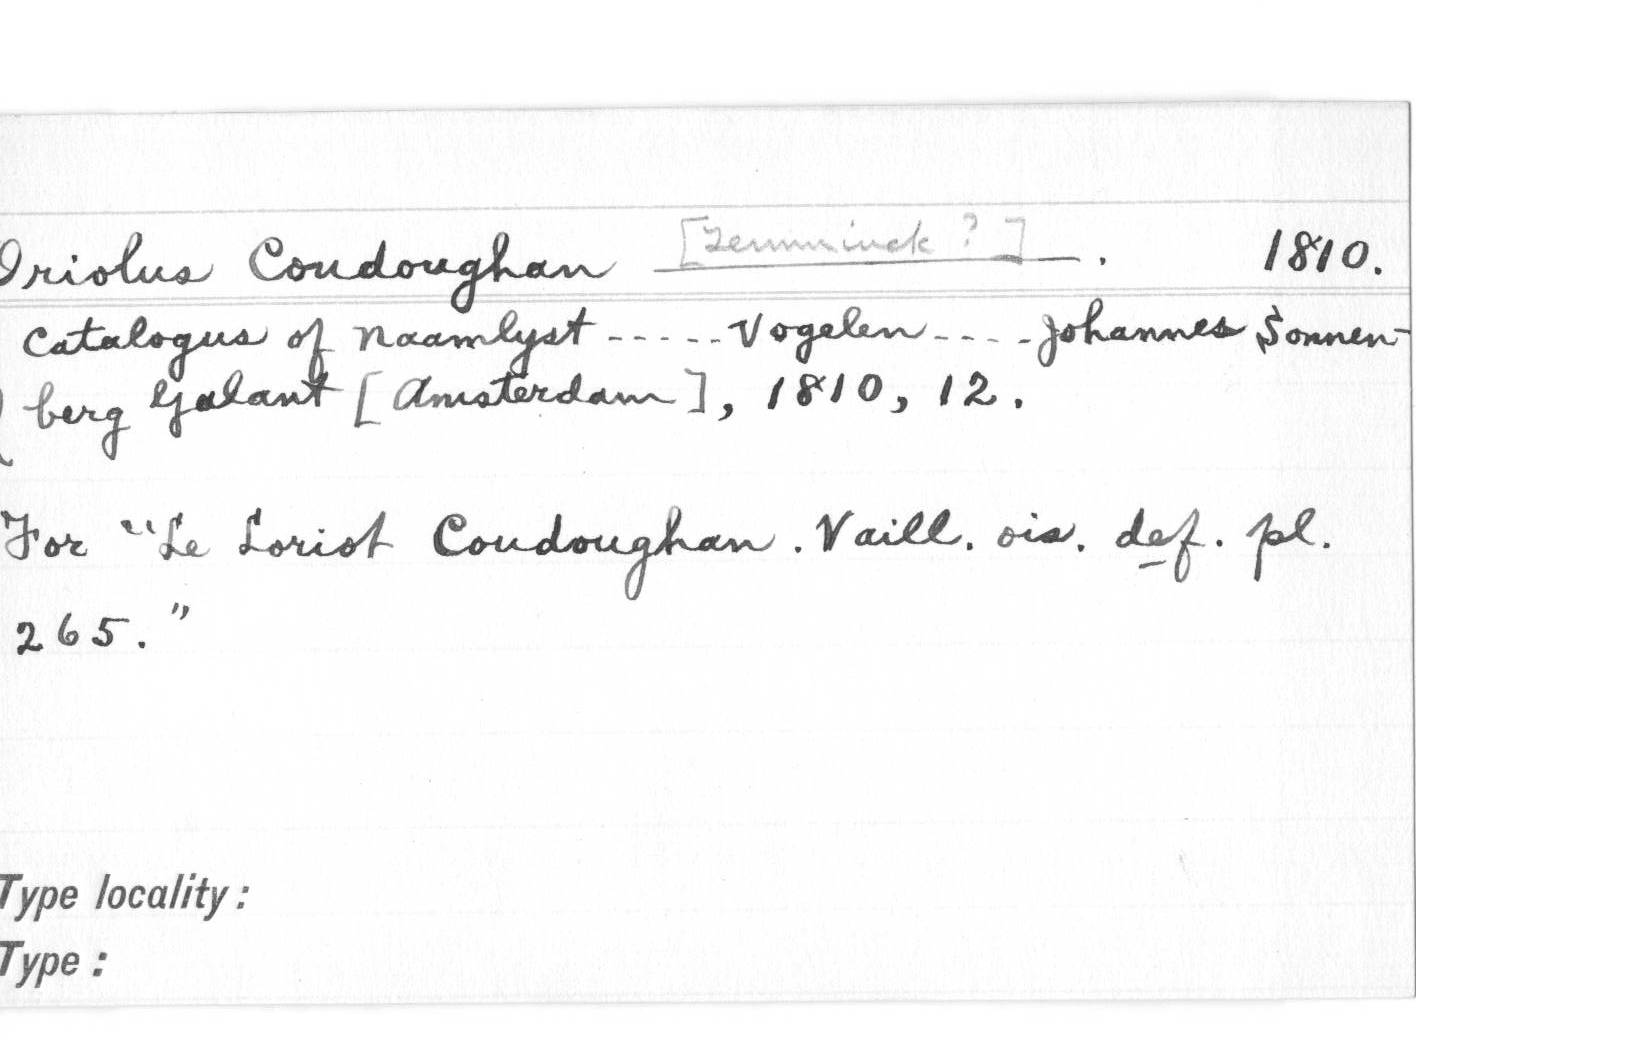 Oriolus Coudoughan [Temminck ?] . 1810.
Catalogus of Naamlyst ----- Vogelen ---- Johannes Sonnen-
berg Galant [Amsterdam], 1810, 12.
For "Le Loriot Coudoughan . Vaill. ois. def. pl.
265."
Type locality :
Type :